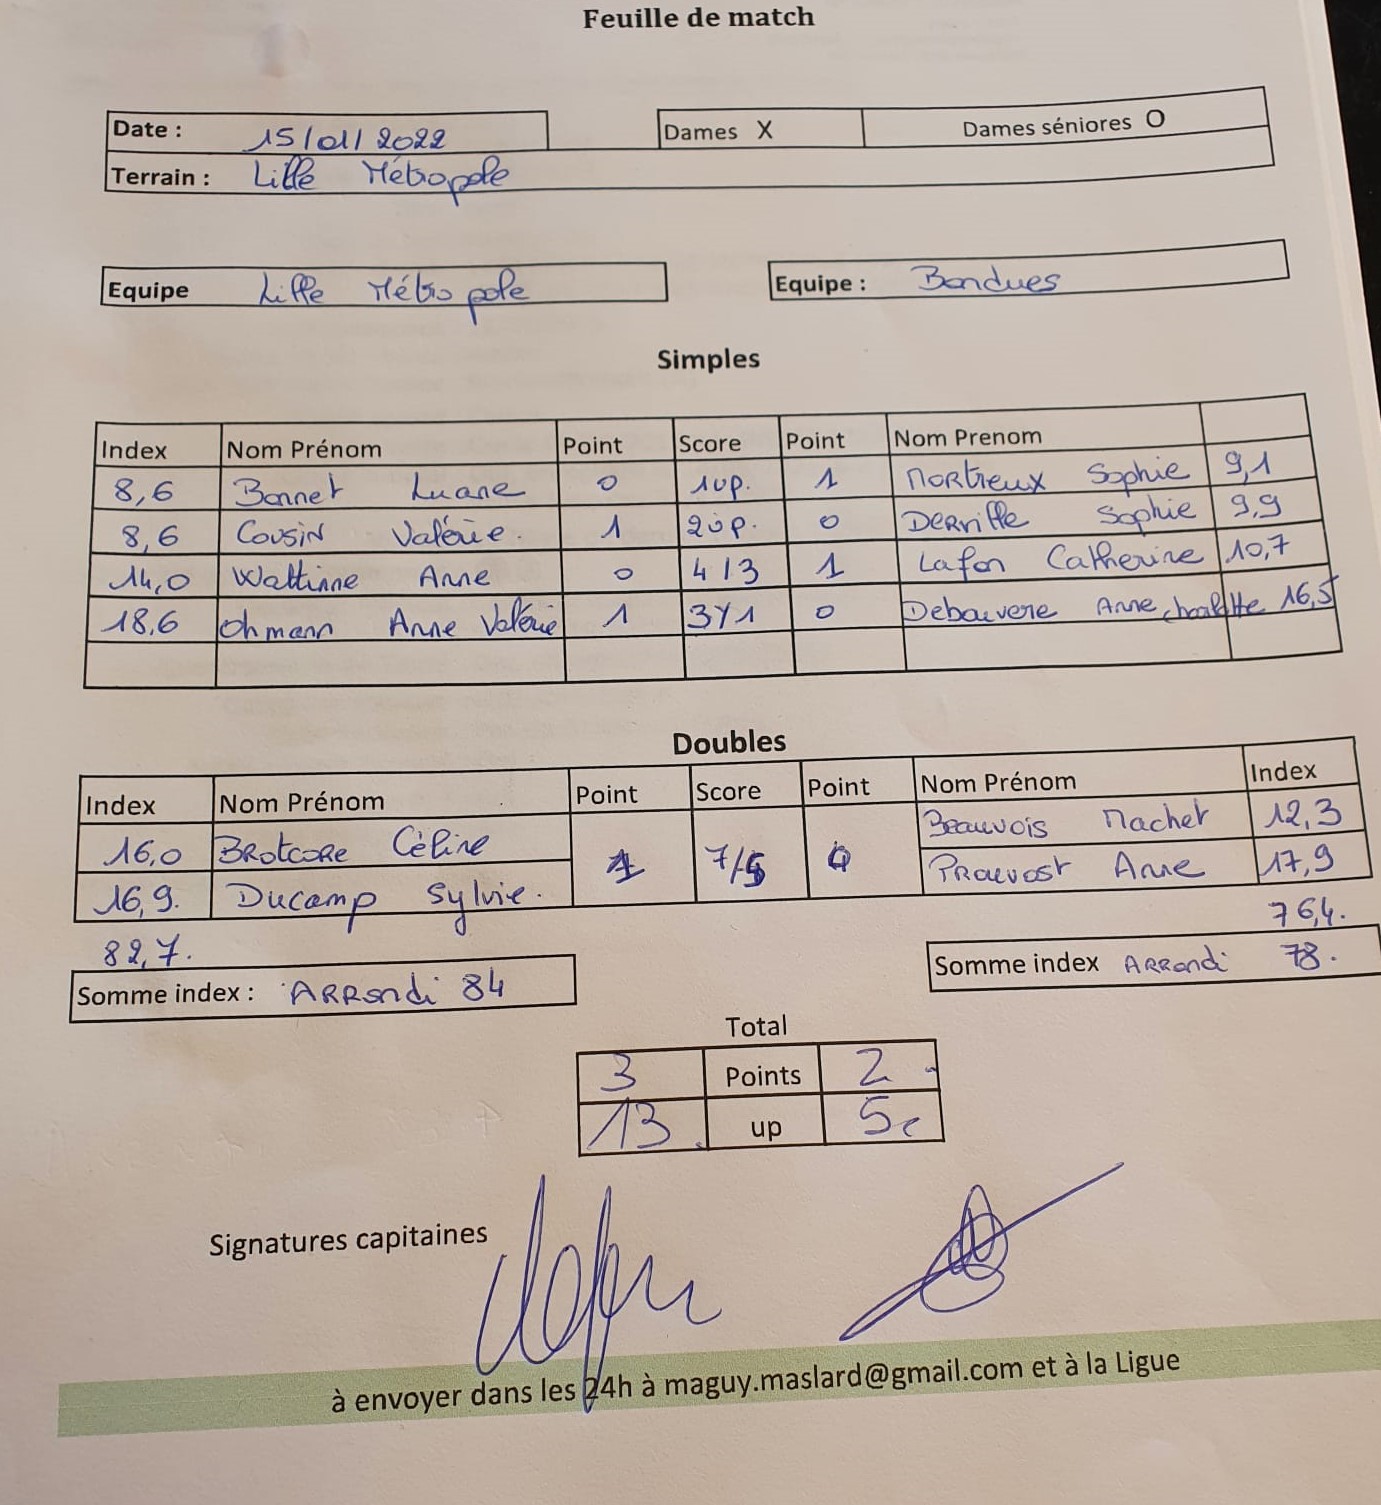 Feuille de match
Date : 15/01/2022 Dames X Dames séniores O
Terrain : Lille Métropole
Equipe Lille Métropole Equipe : Bondues
Simples
Index Nom Prénom Point Score Point Nom Prenom
8,6 Bonnet Luane 0 1up. 1 Mortreux Sophie 9,1
8,6 Cousin Valérie. 1 2up. 0 Derville Sophie 9,9
14,0 Wattinne Anne 0 4/3 1 Lafon Catherine 10,7
18,6 Ohmann Anne Valérie 1 3/1 0 Debouvere Anne 16,5
Doubles
Index Nom Prénom Point Score Point Nom Prénom Index
16,0 Brotcore Céline 1 7/5 0 Beauvois Machet 12,3
16,9. Ducamp Sylvie. Prouvost Anne 17,9
82,7. 76,4.
Somme index : Arrondi 84 Somme index Arrondi 78.
Total
3 Points 2
13 up 5
Signatures capitaines
à envoyer dans les 24h à maguy.maslard@gmail.com et à la Ligue